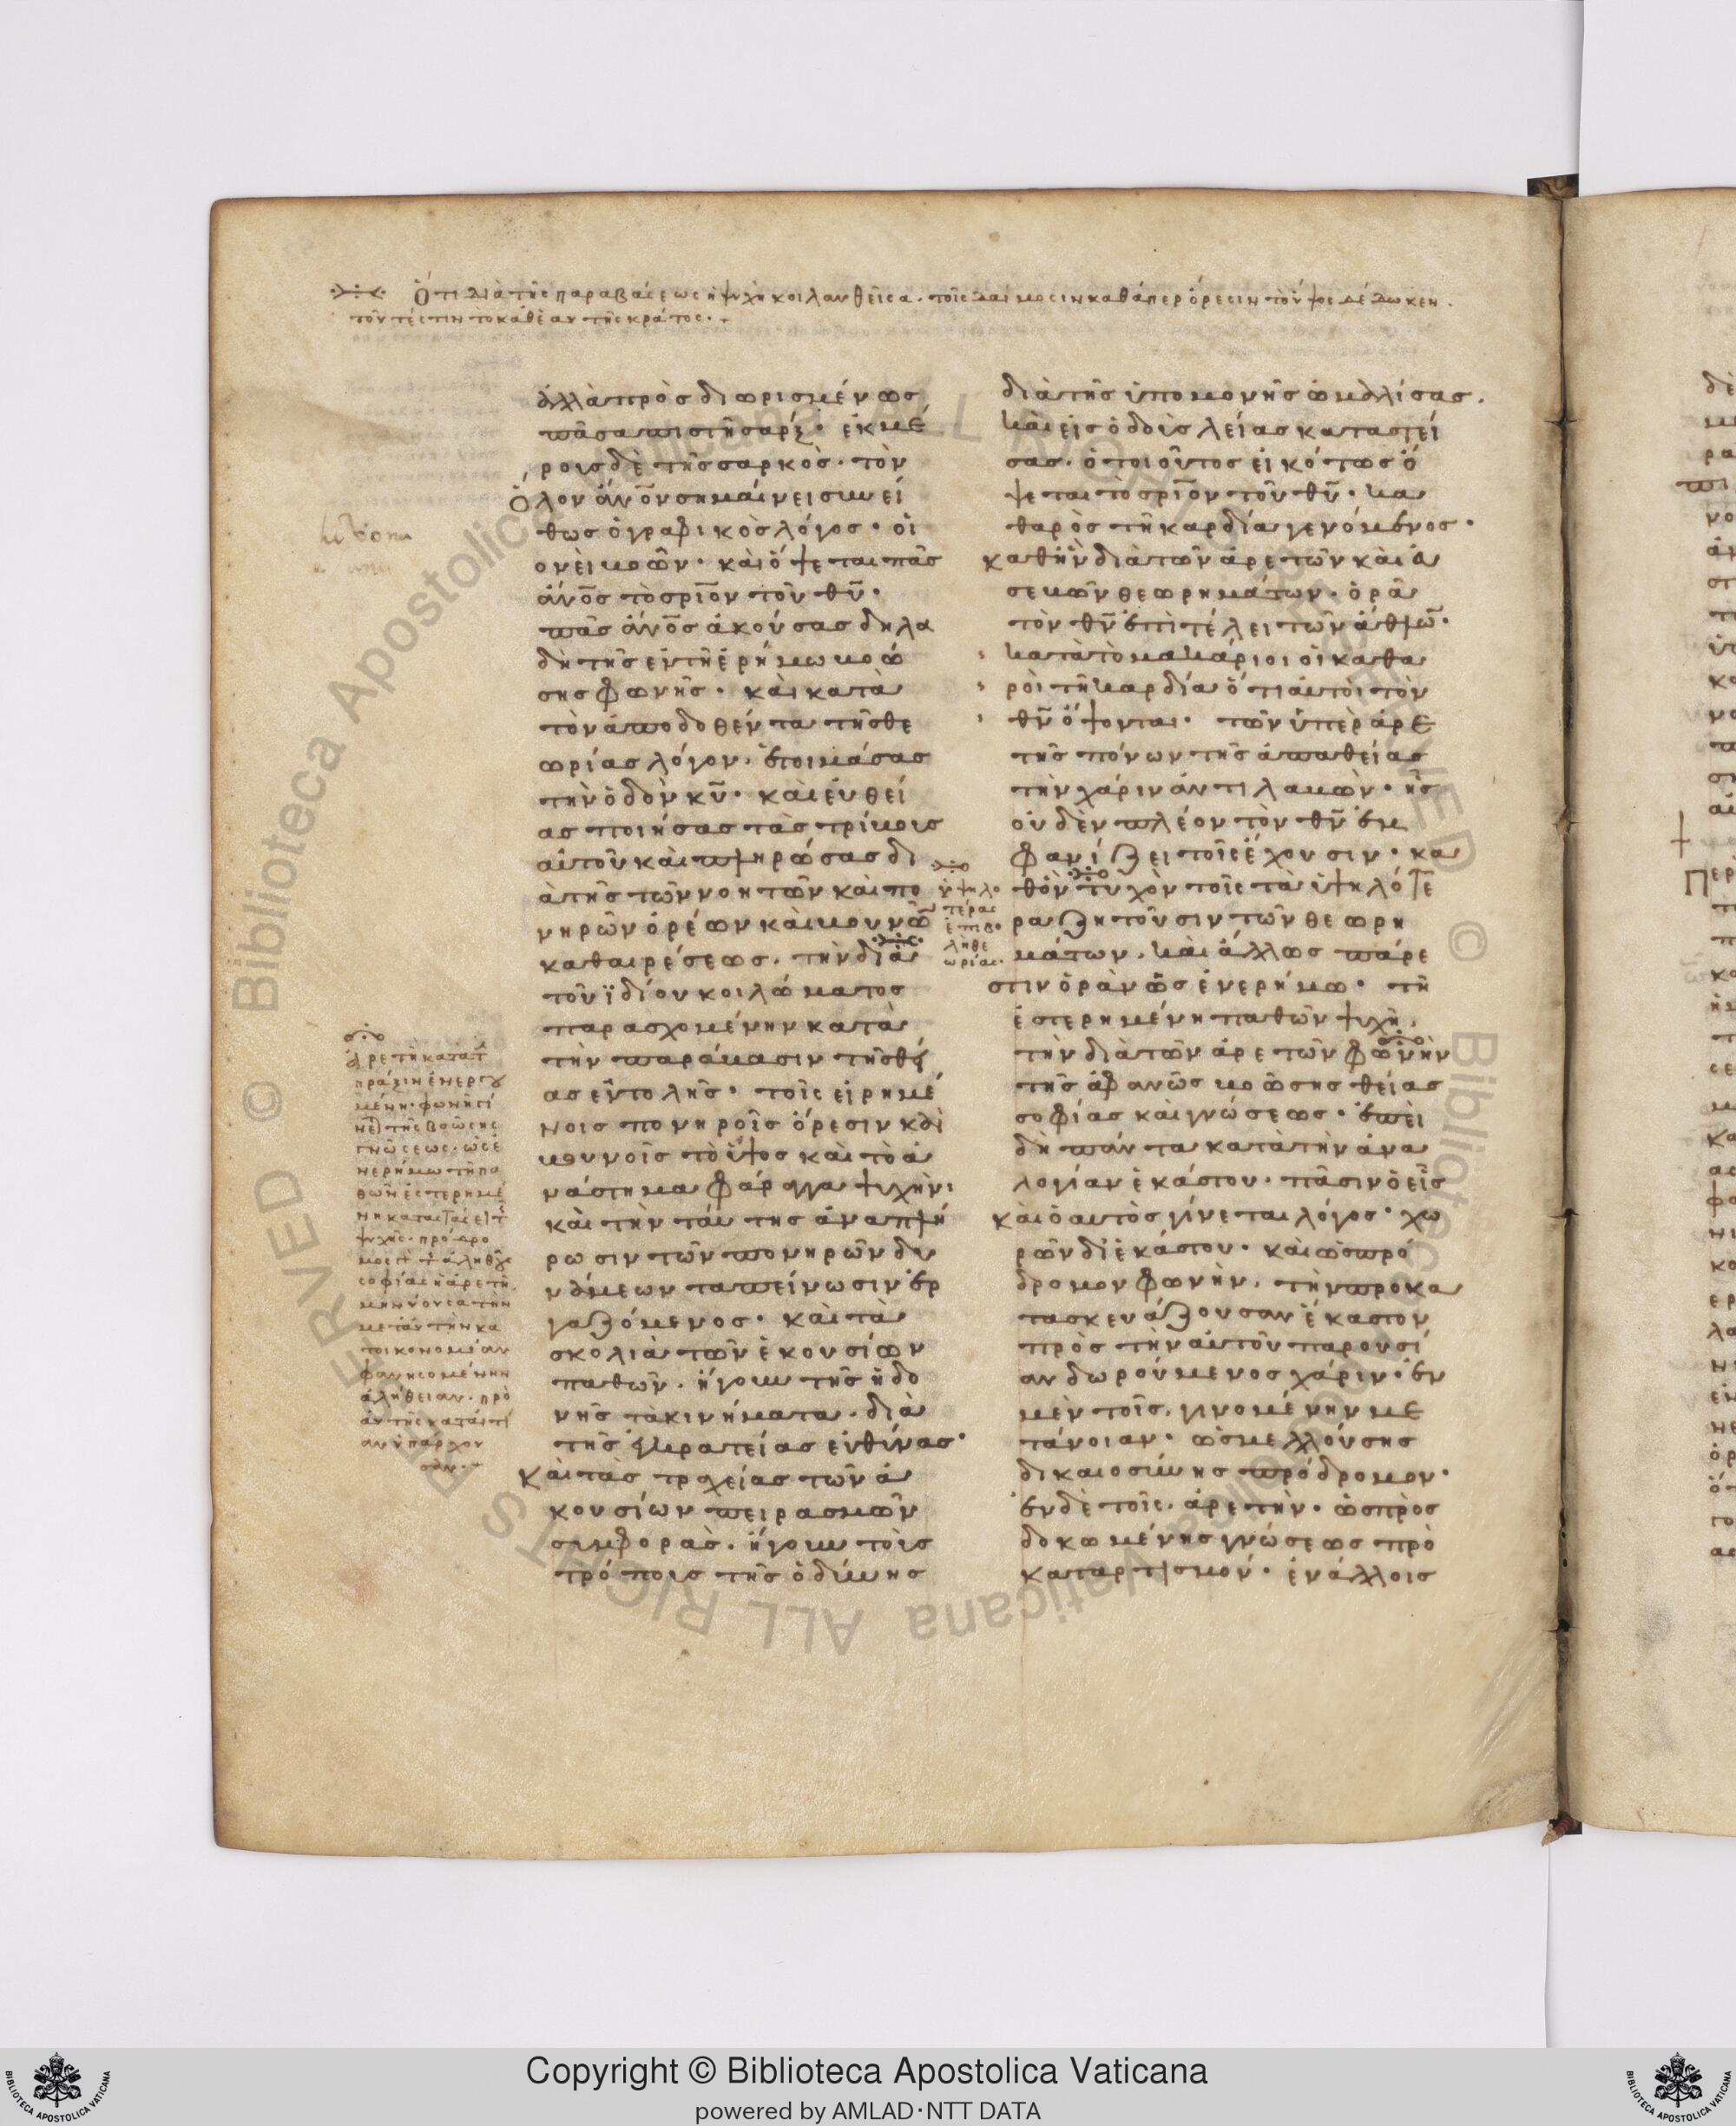 Ὅτι διὰ τῆς παραβάσεως ἡ ψυχὴ κοιλανθεῖσα· τοῖς δαίμοσιν καθάπερ ὄρεσιν τὸ ὕψος δέδωκεν·
τουτέστιν τὸ καθ' ἑαυτῆς κράτος·
ἀλλὰ προσδιωρισμένως
πᾶσα πιστὴ σάρξ· ἐκ μέ
ρους δὲ τῆς σαρκὸς· τὸν
ὅλον ἄνον σημαίνει συνεί
θως ὁ γραφικὸς λόγος· οἱ
ονεὶ βοῶν· καὶ ὄψεται πᾶς
ἄνος τὸ σριον τοῦ θυ·
πᾶς ἄνος ἀκούσας δηλα
δὴ τῆς ἐν τῇ ἐρήμω βοώ
σης φωνῆς· καὶ κατὰ
τὸν ἀποδοθέντα τῆς θε
ωρίας λόγον· ἑτοιμάσας
τὴν ὁδὸν κυ· καὶ εὐθεί
ας ποιήσας τὰς τρίβους
αὐτοῦ καὶ πληρώσας δι
ὰ τῆς τῶν νοητῶν καὶ πο
νηρῶν ὀρέων καὶ βουνῶν
καθαιρέσεως· τὴν διὰ
τοῦ ϊδίου κοιλώματος
παρασχομένην κατὰ
τὴν παράβασιν τῆς θεί
ας ἐντολῆς· τοῖς εἰρημέ
νοις πονηροῖς ὄρεσιν καὶ
βουνοῖς τὸ ὕψος καὶ τὸ ἀ
νάστημα φάραγγα ψυχὴν·
καὶ τὴν ταύτης ἀναπλή
ρωσιν τῶν πονηρῶν δυ
νάμεων ταπείνωσιν ἐρ
γαζόμενος· καὶ τὰ
σκολιὰ τῶν ἑκουσίων
παθῶν· ἤγουν τῆς ἡδο
νῆς τὰ κινήματα· διὰ
τῆς ἐγκρατείας εὐθύνας·
καὶ τὰς τραχείας τῶν ἀ
κουσίων πειρασμῶν
συμφορὰς· ἤγουν τοὺς
τρόπους τῆς ὀδύνης
διὰ τῆς ὑπομονῆς ὁμαλίσας·
καὶ εἰς ὁδοὺς λείας καταστεί
σας· ὁ τοιοῦτος εἰκότως ὄ
ψεται τὸ σριον τοῦ θυ· κα
θαρὸς τῇ καρδία γενόμενος·
καθ' ἣν διὰ τῶν ἀρετῶν καὶ εὐ
σεβῶν θεωρημάτων· ὁρᾶ
τὸν θν ἐπὶ τέλει τῶν ἄθλων·
κατὰ τὸ μακάριοι οἱ καθα
ροὶ τῇ καρδία ὅτι αὐτοὶ τὸν
θν ὄψονται· τῶν ὑπὲρ ἀρε
τῆς πόνων τῆς ἀπαθείας
τὴν χάριν ἀντιλαβὼν· ἧς
οὐδὲν πλέον τὸν θν ἐμ
φανίζει τοῖς ἔχουσιν· κα
θὸν τυχὸν τοῖς τὰ ὑψηλότε
ρα ζητοῦσιν τῶν θεωρη
μάτων· καὶ ἄλλως πάρε
στιν ὁρὰν ὡς ἐν ἐρήμω· τῇ
ἐστερημένη παθῶν ψυχῆ·
τὴν διὰ τῶν ἀρετῶν φωνὴν
τῆς ἀφανῶς βοώσης θείας
σοφίας καὶ γνώσεως· ἐπει
δὴ πάντα κατὰ τὴν ἀνα
λογίαν ἑκάστου· πᾶσιν ὁ εἷς
καὶ ὁ αυτὸς γίνεται λόγος· χω
ρῶν δι' ἑκάστου· καὶ ὡς πρό
δρομον φωνὴν· τὴν προκα
τασκευάζουσαν ἕκαστον
πρὸς τὴν αὐτοῦ παρουσί
αν δωρούμενος χάριν· ἐν
μὲν τοῖς· γινομένην με
τάνοιαν· ὡς μελλούσης
δικαιοσύνης πρόδρομον·
ἐν δὲ τοῖς· ἀρετὴν· ὡς προσ
δοκωμένης γνώσεως προ
καταρτισμόν· ἐν ἄλλοις
ὑψηλο
τέρας
ἐπιβο
λῆ θε
ωρίας·
ἀρετὴ κατὰ τ
πράξιν ἐνεργου
μένη· φωνή τί
της βοώσης
γνώσεως· ὡς ἐ
ν ἐρήμω τῇ πα
θῶν ἐστερημέ
ψυχῆς· πρόδρο
μος ἀληθοῦς
σοφίας ἡ ἀρετὴ·
μηνύουσα τὴν
μετ' αὐτὴν κα
τ' οἰκονομίαν
φανησομένην
ἀλήθειαν· πρὸ
αὐτῆς κατ' αἰτί
αν ὑπάρχου
σαν·
Copyright © Biblioteca Apostolica Vaticana
powered by AMLAD·NTT DATA